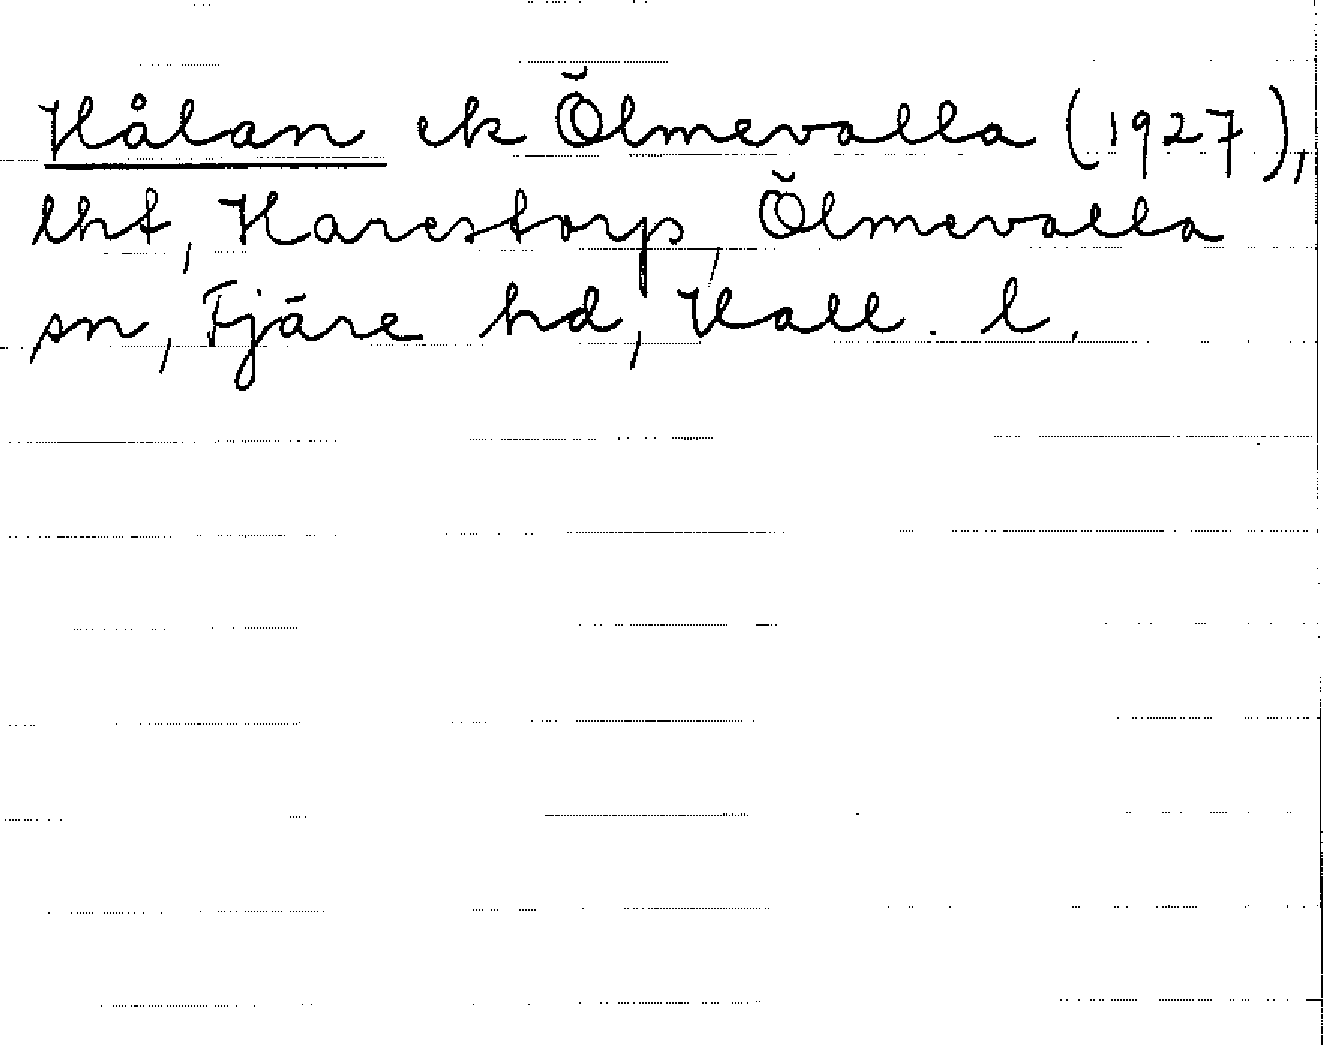 Hålan ek Ölmevalla (1927),
lht, Harestorp, Ölmevalla
sn, Fjäre hd, Hall. l.